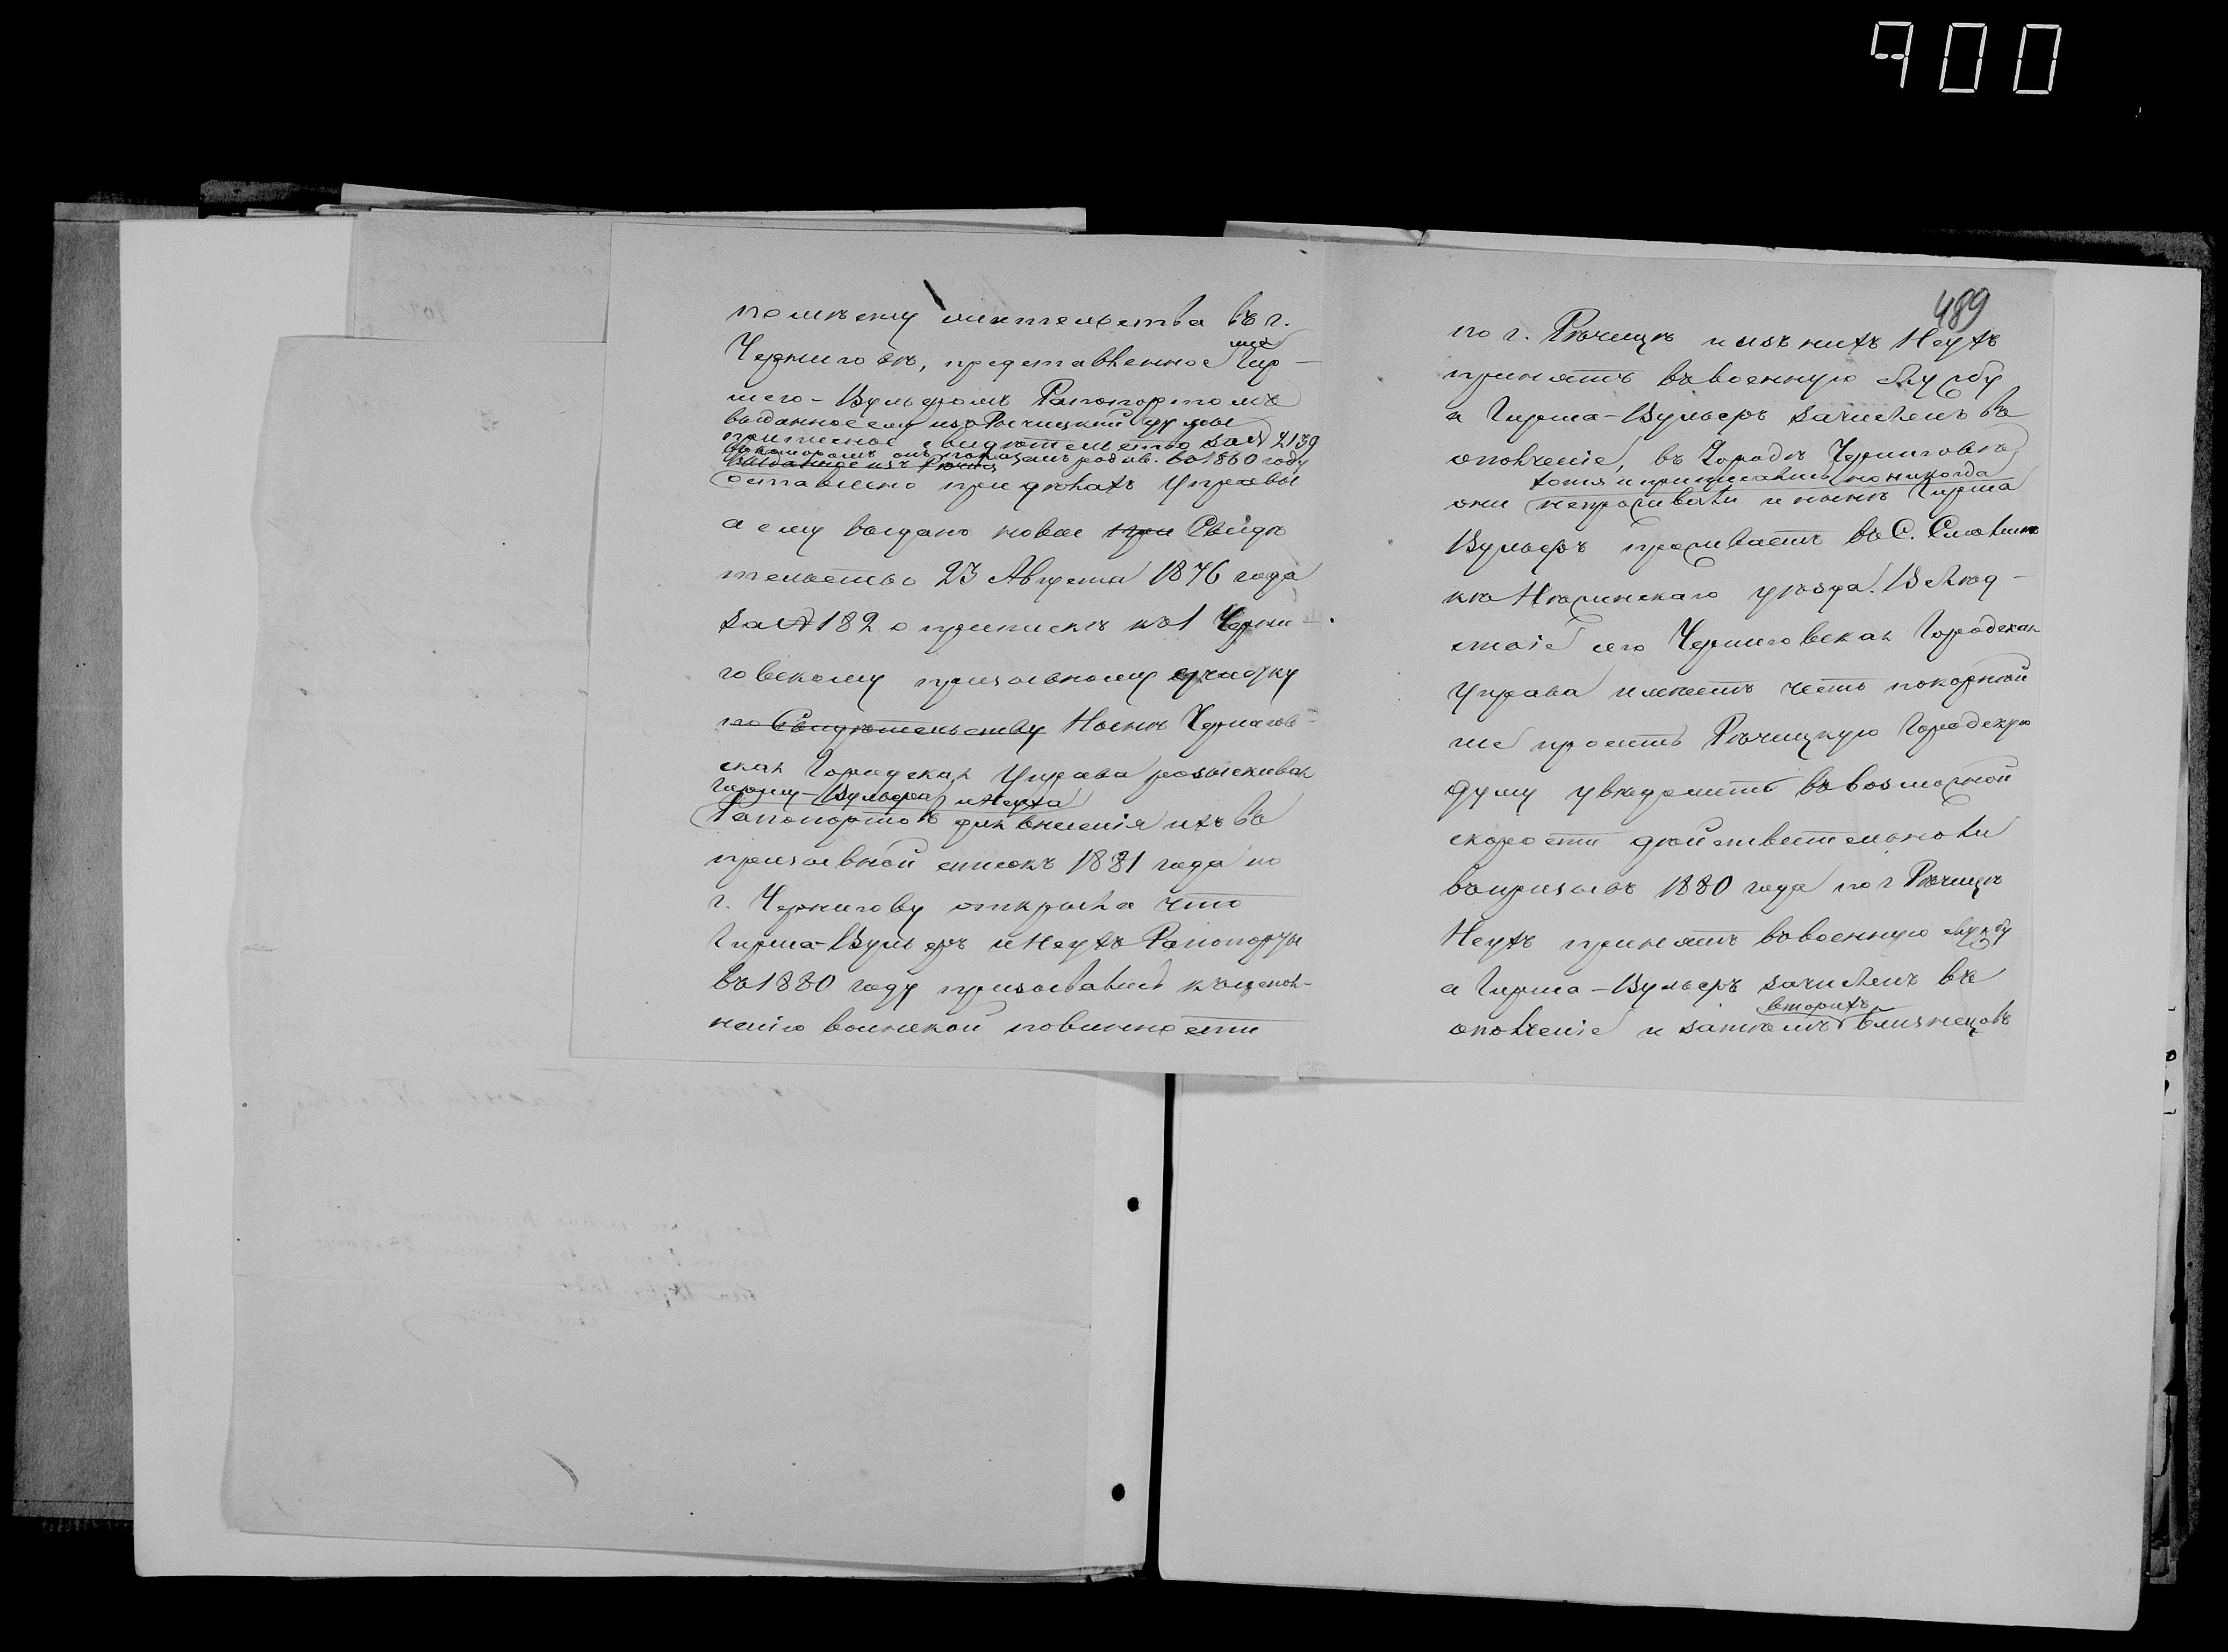 900
по мѣсту жительства въ г.
Черниговѣ, представленное имъ Гир-
шего-Вульфомъ Рапопортомъ
выданное ему изъ Речицкой думы
приписное свидѣтельство за № 2139
въ которомъ онъ показанъ родив. въ 1860 году
выданное изъ Рѣчиц
оставлено при дѣлахъ Управы
а ему выдано новое при Свидѣ
тельство 23 Августа 1876 года
за № 182 о припискѣ къ 1 Черни-
говскому призывному участку
по Свидѣтельству Нынѣ Чернигов-
ская Городская Управа розыскивая
Гиршу-Вульфа и Неуха
Рапопортовъ для внесенія ихъ въ
призывной списокъ 1881 года по
г. Чернигову открыла что
Гирша-Вульфъ и Неухъ Рапопорты
въ 1880 году призывались къ исполн-
нению воинской повинности
489
по г. Рѣчицѣ и изъ нихъ Неухъ
принятъ въ военную службу
а Гирша-Вульфъ зачисленъ въ
ополченіе, въ Городѣ Черниговѣ
хотя и приписались но никогда
они непроживали и нынѣ Гирша
Вульфъ проживаетъ въ С.
кѣ Нѣжинскаго уѣзда. Вслѣд-
ствіе сего Черниговская Городская
Управа имѣетъ честь покорнѣй
ше просить Рѣчицкую Городскую
думу увѣдомить въ возможной
скорости дѣйствительно ли
въ призывъ 1880 года по г Рѣчицѣ
Неухъ принятъ въ военную службу
а Гирша-Вульфъ зачисленъ въ
ополченіе и затѣмъ вторыхъ близнецовъ